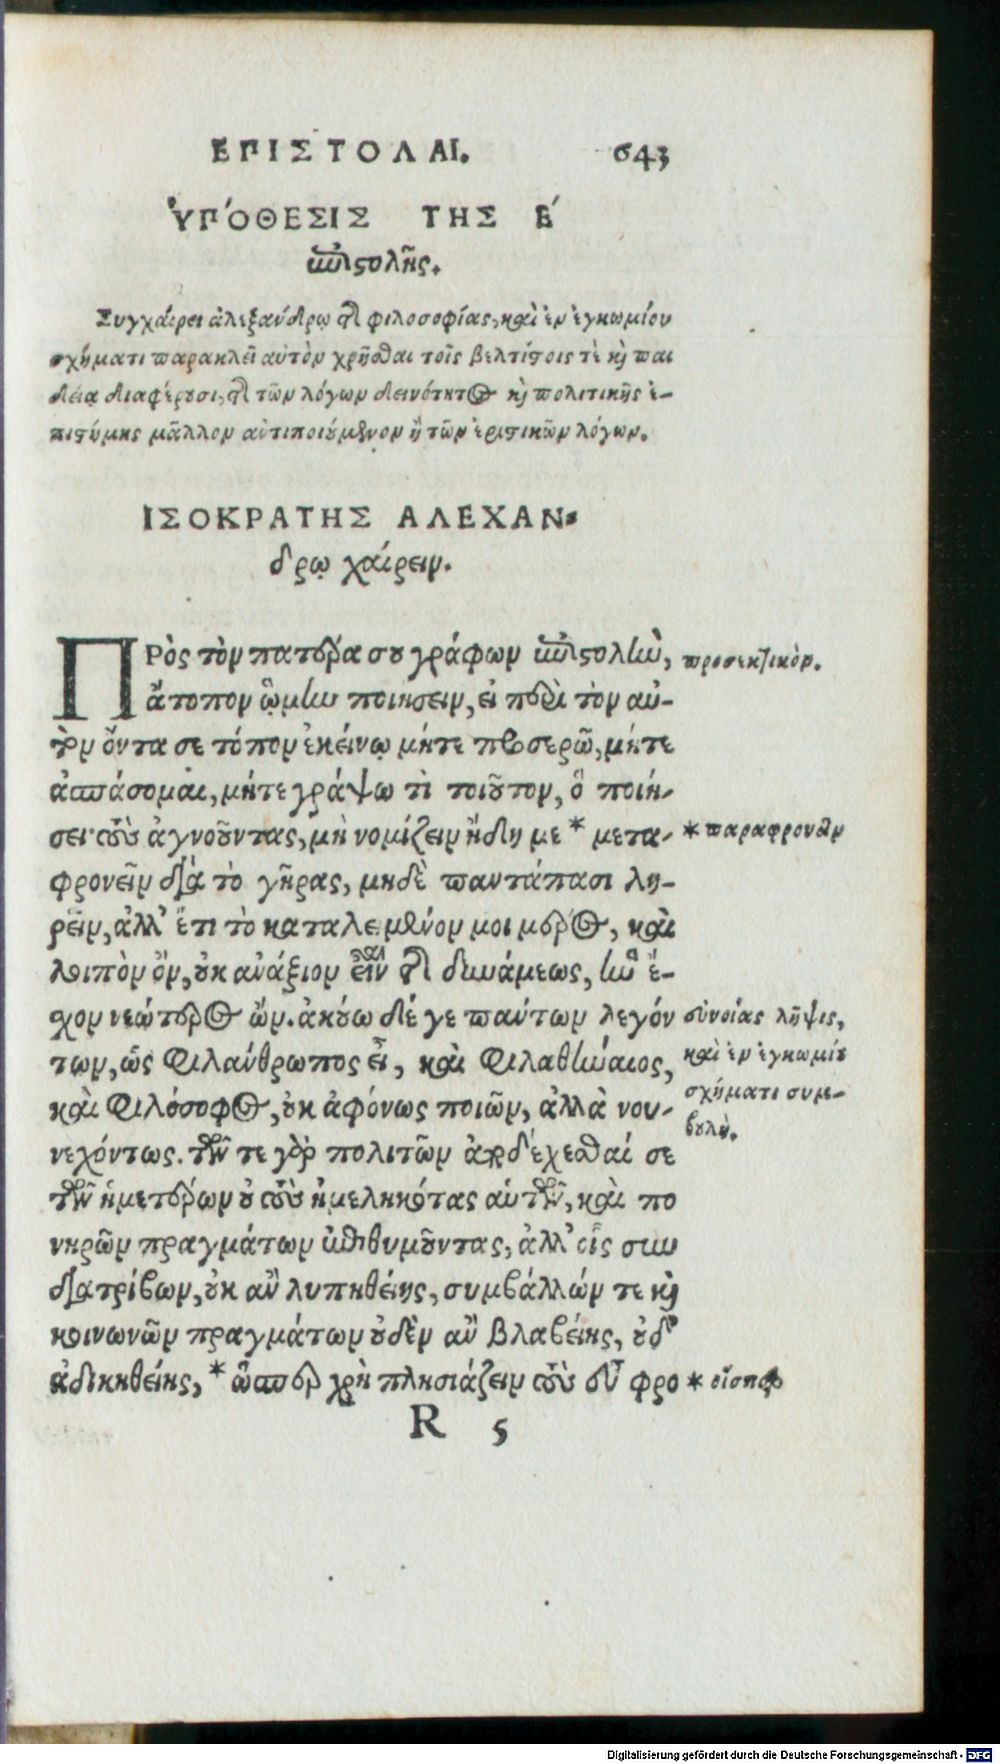 ΕΠΙΣΤΟΛΑΙ. 643
ὙΠΌΘΕΣΙΣ ΤΗΣ Ε΄
ἐπιστολῆς.
Συγχαίρει ἀλεξάνδρῳ ἐπὶ φιλοσοφίας, καὶ ἐν ἐγκωμίου
σχήματι παρακλεῖ αὐτὸν χρῆσθαι τοῖς βελτίστοις τὲ καὶ παι
δείᾳ διαφέρουσι, ἐπὶ τῶν λόγων δεινότητος καὶ πολιτικῆς ἐ-
πιστήμης μᾶλλον ἀντιποιούμενον ἢ τῶν ἐριστικῶν λόγων.
ΙΣΟΚΡΑΤΗΣ ΑΛΕΧΑΝ-
δρῳ χαίρειν.
ΠΡὸς τὸν πατέρα σου γράφων ἐπιστολὴν, προσεκτικὸν.
ἄτοπον ᾤμην ποιήσειν, εἰ περὶ τὸν αὐ-
τὸν ὄντα σε τόπον ἐκείνῳ μήτε προσερῶ, μήτε
ἀσπάσομαι, μήτε γράψω τὶ τοιοῦτον, ὃ ποιή-
σει τοὺς ἀγνοοῦντας, μὴ νομίζειν ἤδη με * μετα- * παραφρονεῖν
φρονεῖν διὰ τὸ γῆρας, μηδὲ παντάπασι λη-
ρεῖν, ἀλλ' ἔτι τὸ καταλελειμμένον μοι μέρος, καὶ
λοιπὸν ὂν, οὐκ ἀνάξιον εἶναι τῆς δυνάμεως, ἣν ἔ-
χον νεώτερος ὤν. ἀκούω δέ γε πάντων λεγόν συνοίας λῆψις,
των, ὡς φιλάνθρωπος εἶ, καὶ φιλαθήναιος, καὶ ἐν ἐγκωμίου
καὶ φιλόσοφος, οὐκ ἀφόνως ποιῶν, ἀλλὰ νου- σχήματι συμ-
νεχόντως. τῶν τε γὰρ πολιτῶν ἀποδέχεσθαί σε βουλὴ.
τῶν ἡμετέρων οὐ τοὺς ἠμεληκότας αὑτῶν, καὶ πο
νηρῶν πραγμάτων ἐπιθυμοῦντας, ἀλλ' οἷς συν
διατρίβων, οὐκ ἂν λυπηθείης, συμβάλλων τε καὶ
κοινωνῶν πραγμάτων οὐδὲν ἂν βλαβείης, οὐδ'
ἀδικηθείης, * ὥσπερ χρὴ πλησιάζειν τοὺς εὖ φρο * οἵσπερ
R 5
Digitalisierung gefördert durch die Deutsche Forschungsgemeinschaft - DFG